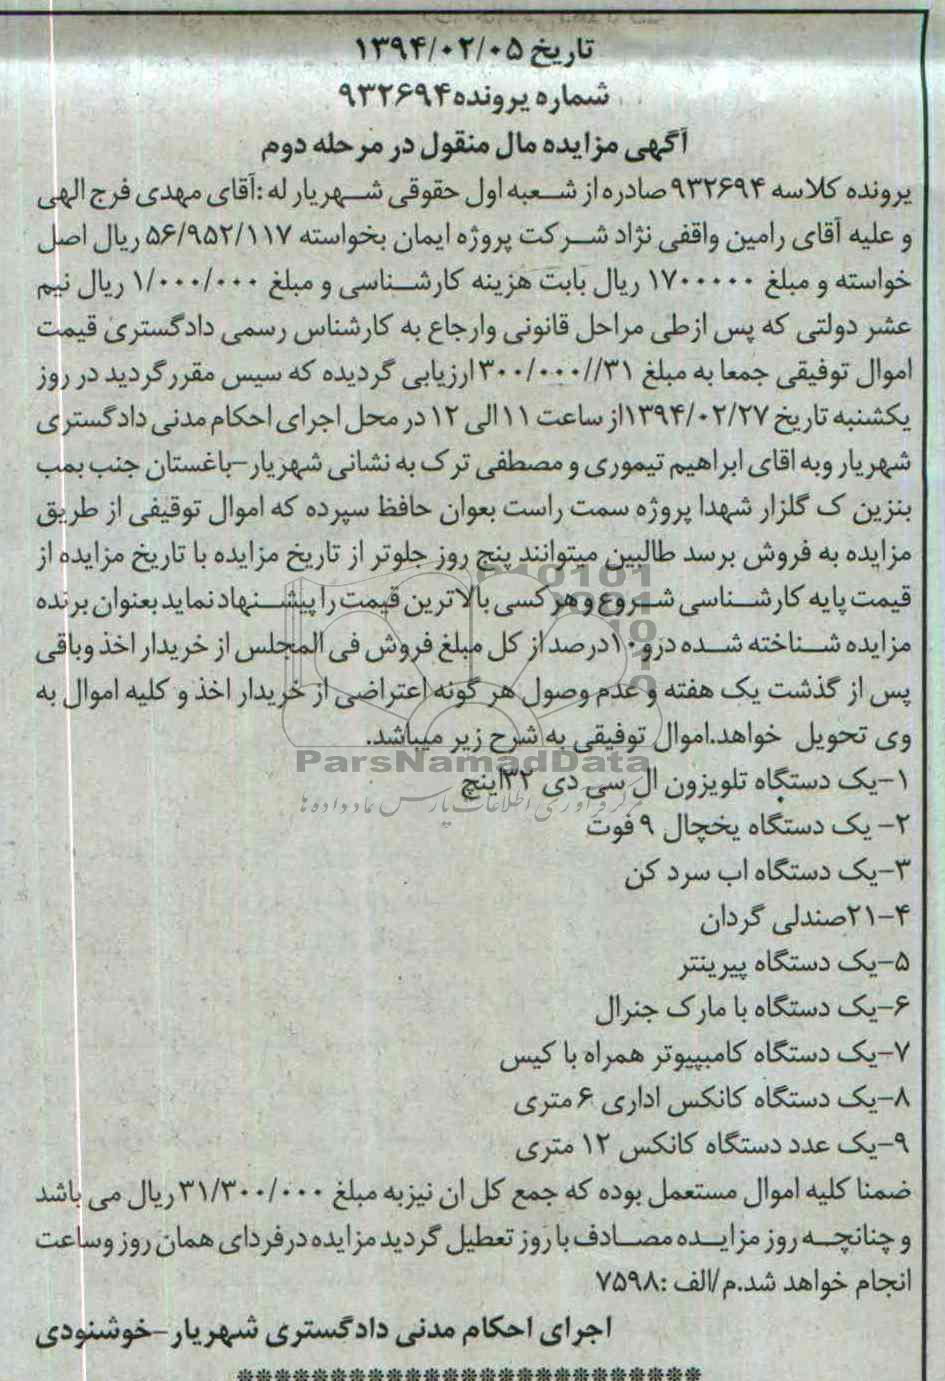 تاریخ ۱۳۹۴/۰۲/۰۵
شماره پرونده ۹۳۲۶۹۴
آگهی مزایده مال منقول در مرحله دوم
پرونده کلاسه ۹۳۲۶۹۴ صادره از شعبه اول حقوقی شهریار له :آقای مهدی فرج الهی
و علیه آقای رامین واقفی نژاد شرکت پروژه ایمان بخواسته ۵۶/۹۵۲/۱۱۷ ریال اصل
خواسته و مبلغ ۱۷۰۰۰۰۰ ریال بابت هزینه کارشناسی و مبلغ ۱/۰۰۰/۰۰۰ ریال نیم
عشر دولتی که پس ازطی مراحل قانونی وارجاع به کارشناس رسمی دادگستری قیمت
اموال توفیقی جمعا به مبلغ ۳۱//۳۰۰/۰۰۰ ارزیابی گردیده که سپس مقررگردید در روز
یکشنبه تاریخ ۱۳۹۴/۰۲/۲۷از ساعت ۱۱الی ۱۲ در محل اجرای احکام مدنی دادگستری
شهریار وبه اقای ابراهیم تیموری و مصطفی ترک به نشانی شهریار-باغستان جنب بمب
بنزین ک گلزار شهدا پروژه سمت راست بعوان حافظ سپرده که اموال توقیفی از طریق
مزایده به فروش برسد طالبین میتوانند پنج روز جلوتر از تاریخ مزایده با تاریخ مزایده از
قیمت پایه کارشناسی شروع وهرکسی بالاترین قیمت را پیشنهاد نماید بعنوان برنده
مزایده شناخته شده درو۱۰درصد از کل مبلغ فروش فی المجلس از خریدار اخذ وباقی
پس از گذشت یک هفته و عدم وصول هر گونه اعتراضی از خریدار اخذ و کلیه اموال به
وی تحویل خواهد.اموال توفیقی به شرح زیر میباشد.
ParsNamadData
۱-یک دستگاه تلویزون ال سی دی ۳۲اینچ
مرکز فرآوری اطلاعات پارس نماد داده ها
۲- یک دستگاه یخچال ۹ فوت
۳-یک دستگاه اب سرد کن
۴-۲۱صندلی گردان
۵-یک دستگاه پیرینتر
۶-یک دستگاه با مارک جنرال
۷-یک دستگاه کامپیوتر همراه با کیس
۸-یک دستگاه کانکس اداری ۶ متری
۹-یک عدد دستگاه کانکس ۱۲ متری
ضمنا کلیه اموال مستعمل بوده که جمع کل ان نیزبه مبلغ ۳۱/۳۰۰/۰۰۰ ریال می باشد
و چنانچه روز مزایده مصادف با روز تعطیل گردید مزایده درفردای همان روز وساعت
انجام خواهد شد.م/الف :۷۵۹۸
اجرای احکام مدنی دادگستری شهریار-خوشنودی